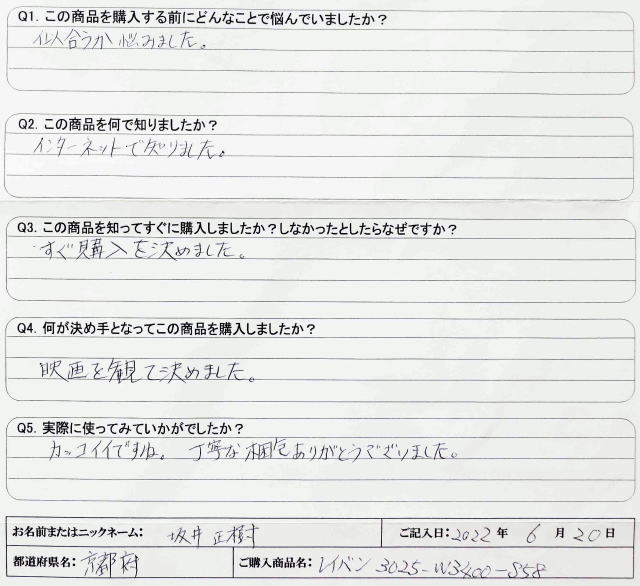 Q1. この商品を購入する前にどんなことで悩んでいましたか？
似合うか悩みました。
Q2. この商品を何で知りましたか？
インターネットで知りました。
Q3. この商品を知ってすぐに購入しましたか？しなかったとしたらなぜですか？
すぐ購入を決めました。
Q4. 何が決め手となってこの商品を購入しましたか？
映画を観て決めました。
Q5. 実際に使ってみていかがでしたか？
カッコイイですね。 丁寧な梱包ありがとうございました。
お名前またはニックネーム： 坂井 正樹 ご記入日：2022 年 6 月 20 日
都道府県名： 京都府 ご購入商品名： レイバン 3025-W3400-S58